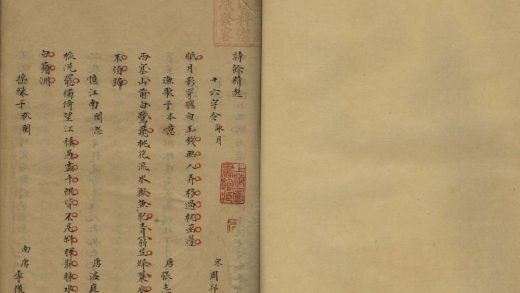 詩餘精選
十六字令 咏月 宋 周邦
眠月影穿窗白玉錢無人弄移過枕函邊
漁歌子 本意 唐 張志
西塞山前白鷺飛桃花流水鱖魚肥青箬笠綠蓑衣
不須歸
憶江南 閨思 唐 溫庭
梳洗罷獨倚望江樓過盡千帆皆不是斜暉脈脈水
白蘋洲
搗練子 秋閨 南唐 李後
上海圖書館藏